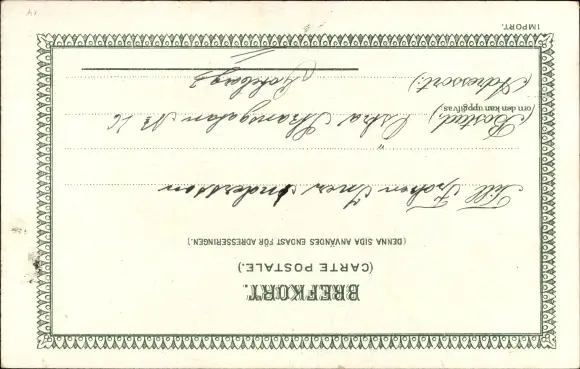 BREFKORT.
(CARTE POSTALE.)
(DENNA SIDA ANVÄNDES ENDAST FÖR ADRESSERINGEN.)
Till Fröken Andersson
(Bostad, Östra Skansgatan No 26
om den kan uppgifvas)
(Adressort:) Göteborg
IMPORT.